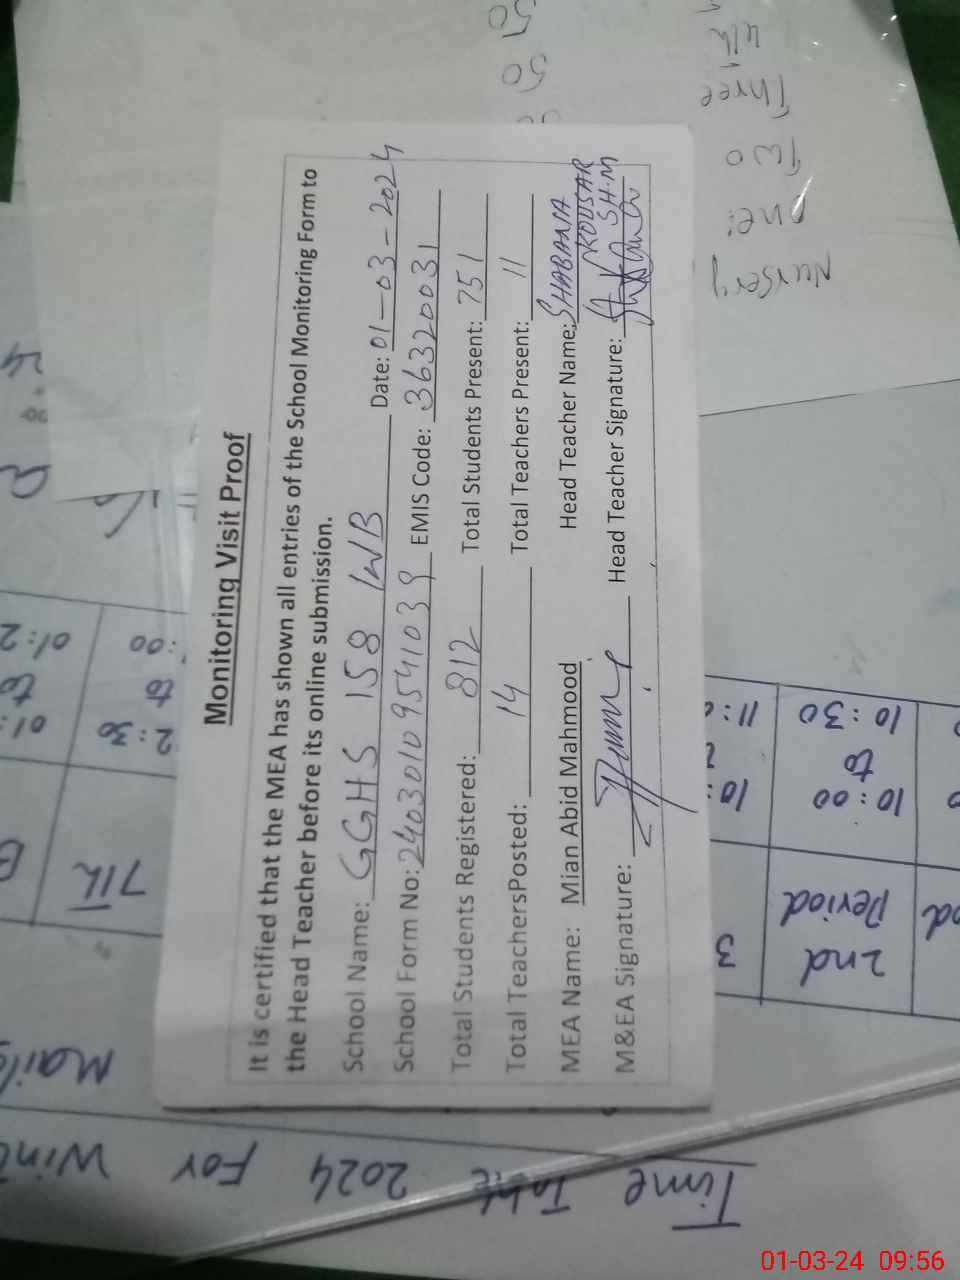 Monitoring Visit Proof
It is certified that the MEA has shown all entries of the School Monitoring Form to
the Head Teacher before its online submission.
School Name: GGHS 158 WB Date: 01-03-2024
School Form No: 24030109541039 EMIS Code: 36320031
Total Students Registered: 812 Total Students Present: 751
Total TeachersPosted: 14 Total Teachers Present: 11
MEA Name: Mian Abid Mahmood Head Teacher Name: SHABANA KOUSAR
M&EA Signature: Head Teacher Signature: S.H.M
50
50
4th
Three
Two
One:
Nursery
Time Table 2024 For Wint
7th
2:30
to
:00
01:
to
01:2
3
10:
11:0
2nd
Period
10:00
to
10:30
01-03-24 09:56